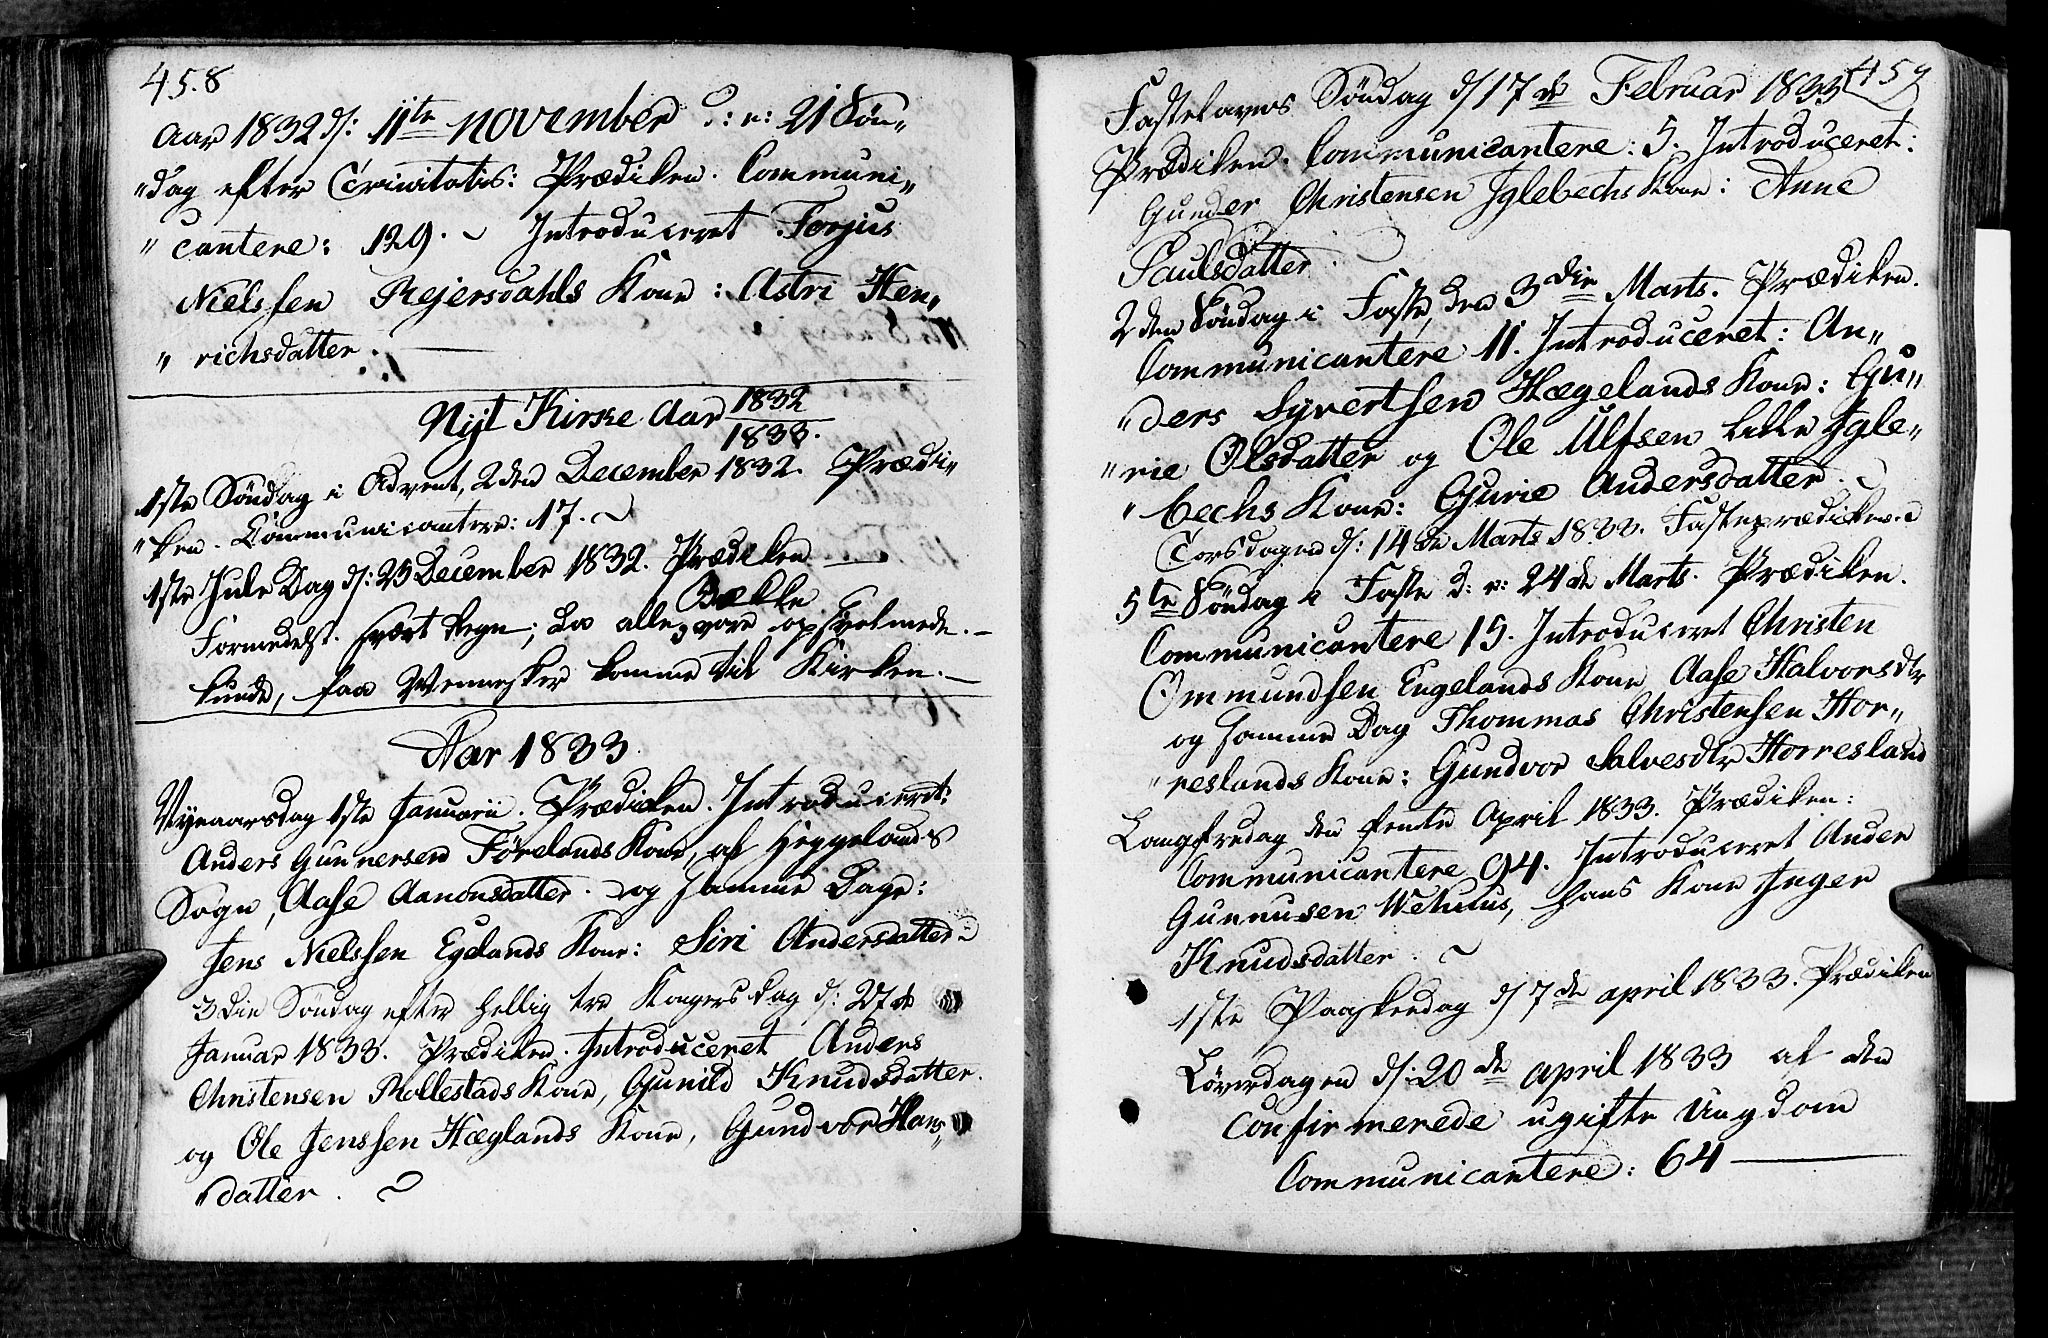 458
Aar 1832 d: 11te November d: e: 21 Søn„
„dag efter Trinitatis: Prædiken. Communi„
„cantere: 129. Introduceret Torjus
Nielssen Rejersdahls Kone: Astri Hen„
„richsdatter.
Nyt Kirke Aar 1832
1833.
1ste Søndag i Advent, 2den December 1832. Prædi„
„ken. Communicantere: 17.
1ste Jule Dag d: 25 December 1832. Prædiken
Bække
Formedelst svært Regn; da alle vare opsvolmede.
kunde, faa Mennesker komme til Kirken.
Aar 1833
Nyeaarsdag 1ste Januarii. Prædiken. Introduceret:
Anders Gunnersen Førelands Kone, af Heggelands
Sogn, Aase Aanonsdatter. og samme Dage:
Jens Nielssen Egelands Kone: Siri Andersdatter
3die Søndag efter Hellig tre Kongers dag d: 27de
Januar 1833. Prædiken. Introduceret Anders
Christensen Rollestads Kone, Gunild Knudsdatter.
og Ole Jenssen Hæglands Kone, Gundvor Hans„
„datter.
459
Fastelavns Søndag d 17de Februar 1833
Prædiken. Communicantere: 5. Introduceret:
Gunder Christensen Iglebechs Kone: Anne
Paulsdatter.
2den Søndag i Faste, den 3die Marts. Prædiken.
Communicantere 11. Introduceret: An„
„ders Syvertsen Hægelands Kone: Gu„
„rie Olsdatter og Ole Ulfsen Lille Igle„
„bechs Kone: Gurie Andersdatter.
Torsdagen d: 14de Marts 1833. Fasteprædiken.
5te Søndag i Faste d: e: 24de Marts. Prædiken.
Communicantere 15. Introduceret Christen
Ommundsen Engelands Kone Aase Halvorsdtr
og samme Dag Thommas Christensen Hor„
„reslands Kone: Gundvor Salvesdtr Horresland
Langfredag den femte April 1833. Prædiken:
Communicantere 94. Introduceret Ander
Gunnusen Wehuus, hans Kone Inger
Knudsdatter.
1ste Paaskedag d 7de april 1833. Prædiken
Løverdagen d: 20de april 1833 af den
Confirmerede ugifte Ungdom
Communicantere: 64